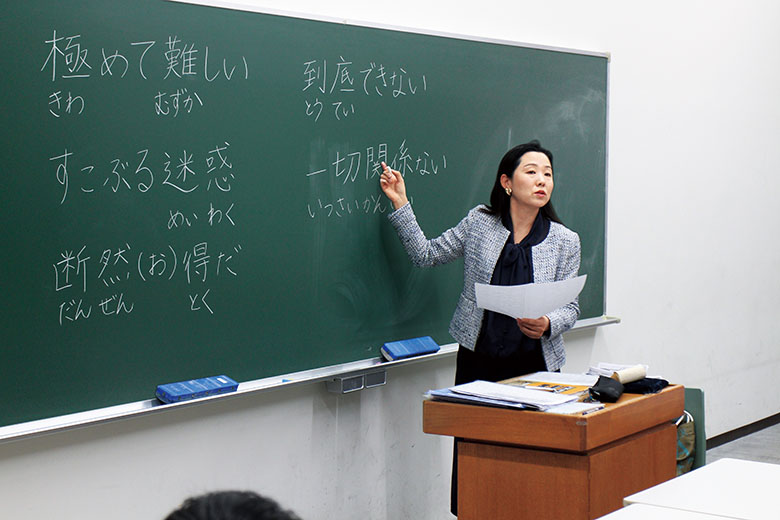 極めて難しい
きわ むずか
すこぶる迷惑
めいわく
断然(お)得だ
だんぜん とく
到底できない
とうてい
一切関係ない
いっさいかん